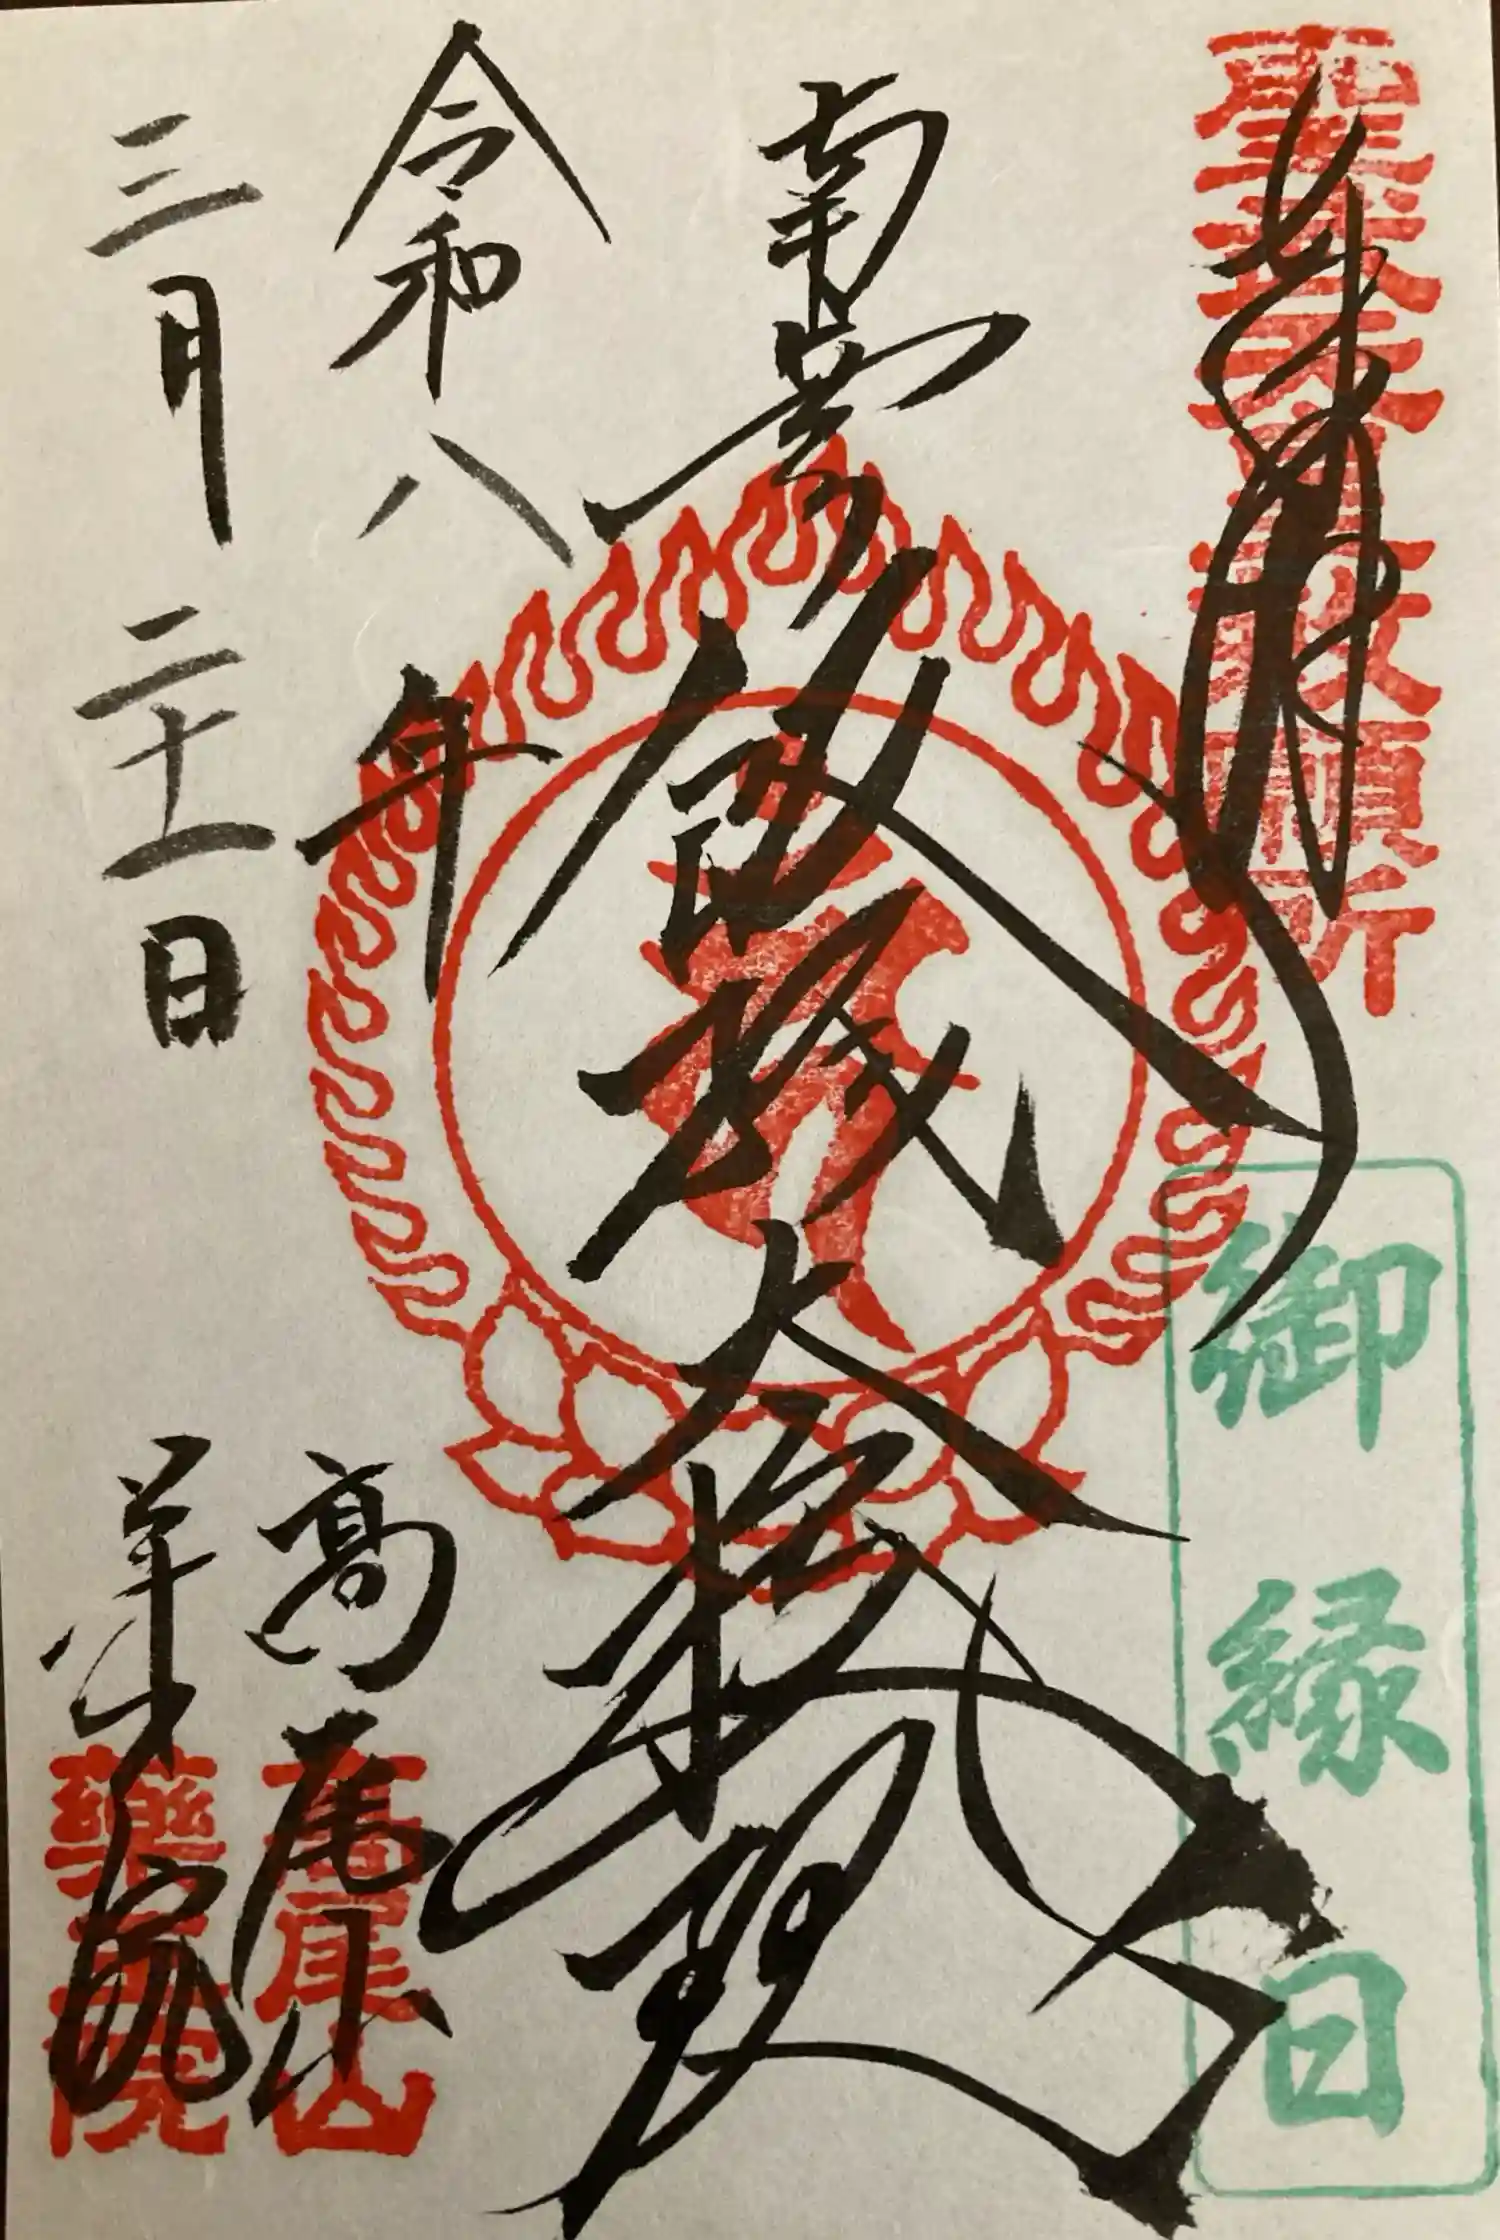 奉拝
聖武天皇勅願所
御縁日
南無飯縄大権現
令和八年
三月二十一日
高尾山
薬王院
高尾山
薬王院